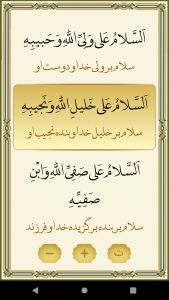 اَلسَّلامُ عَلى وَلِىِّ اللهِ وَ حَبيبِهِ
سلام بر ولى خدا و دوست او
اَلسَّلامُ عَلى خَليلِ اللهِ وَ نَجيبِهِ
سلام بر خليل خدا و بنده نجيب او
اَلسَّلامُ عَلى صَفِىِّ اللهِ وَ ابْنِ
صَفِيِّهِ
سلام بر بنده برگزيده خدا و فرزند
− + ت